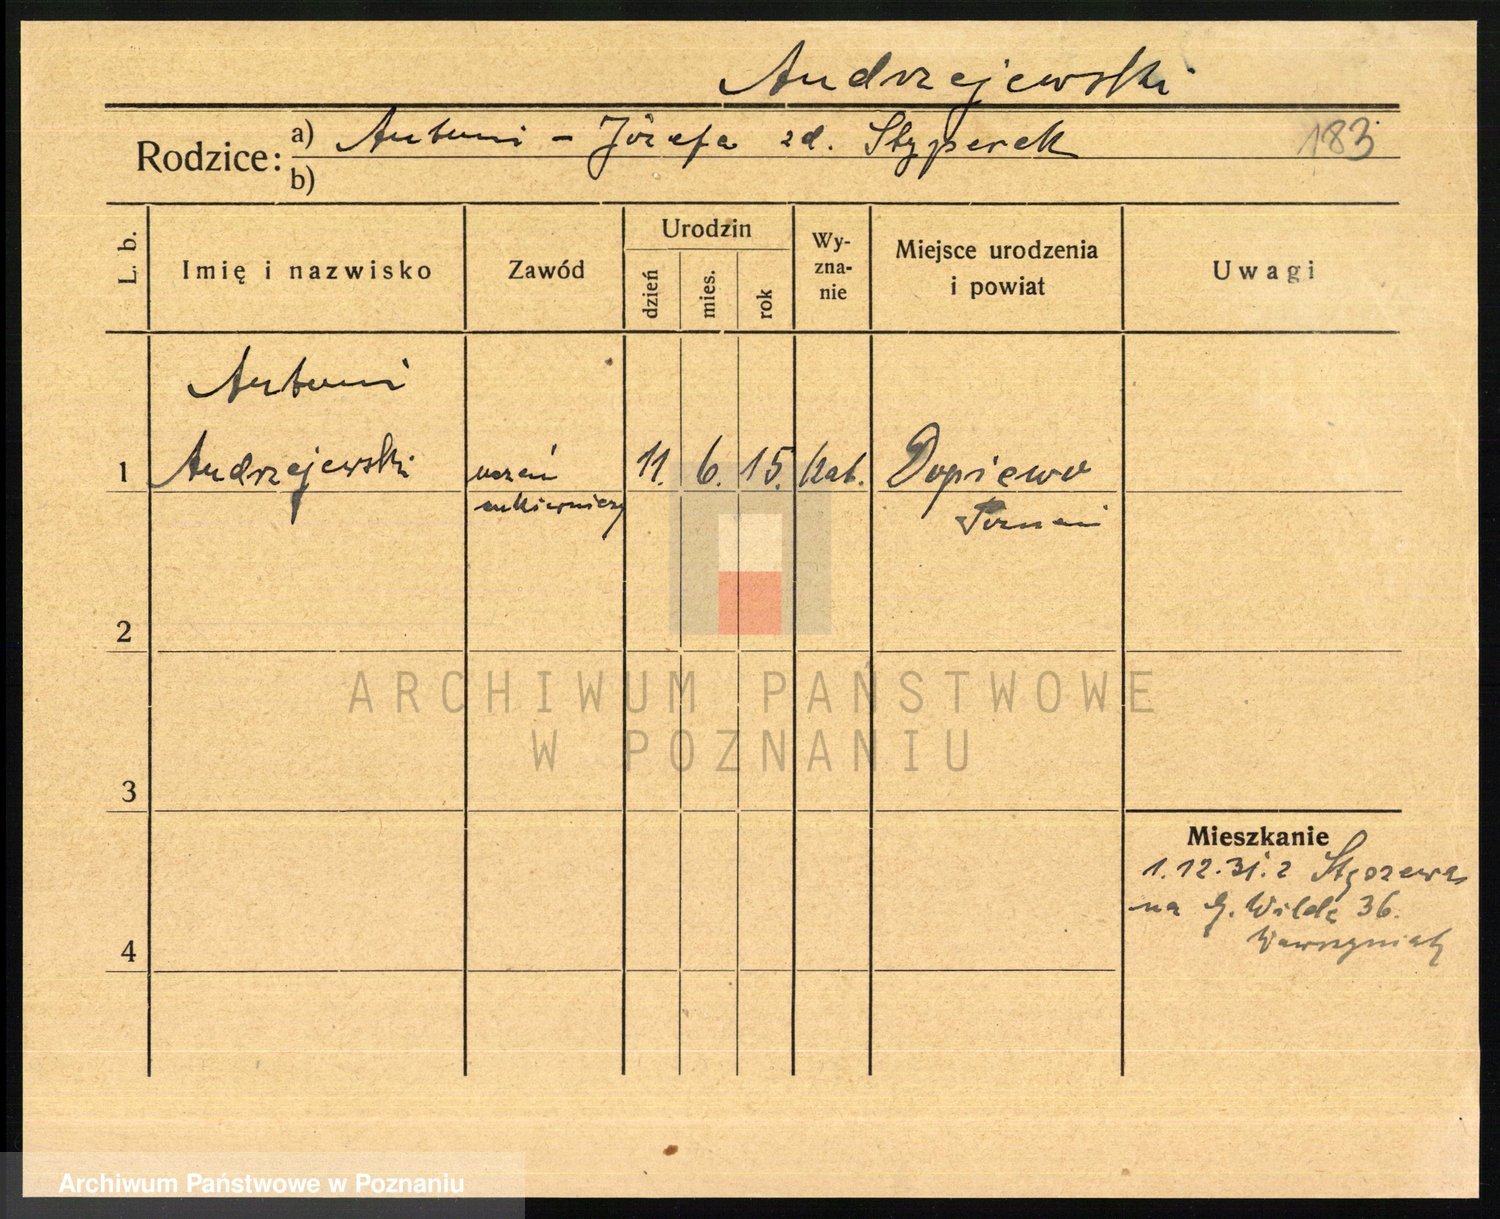 Andrzejewski
Rodzice: a) Antoni - Józefa zd. Styperek 183
b)
L. b. Imię i nazwisko Zawód Urodzin dzień mies. rok Wy-zna-nie Miejsce urodzenia i powiat Uwagi
Antoni
1 Andrzejewski uczeń 11. 6. 15. kat. Dopiewo
cukierniczy Poznań
2
ARCHIWUM PAŃSTWOWE
W POZNANIU
3
Mieszkanie
1.12.31. z
na G. Wildę 36.
4 Wawrzyniak
Archiwum Państwowe w Poznaniu